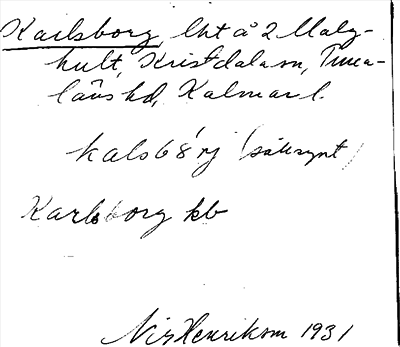 Karlsborg, lht å 2 Malg-
hult, Kristdala sn, Tuna-
läns hd, Kalmar l.
kals68rj (sällsynt)
Karlsborg kb
Nils Henrikson 1931